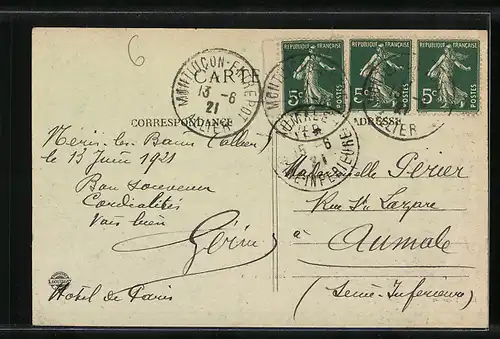 6
CARTE
MONTLUÇON-ENTREPOT
13 -6
21
ALLIER
REPUBLIQUE FRANÇAISE
5c
POSTES
REPUBLIQUE FRANÇAISE
5c
POSTES
REPUBLIQUE FRANÇAISE
5c
POSTES
ALLIER
AUMALE
15 -6
21
SEINE INFERIEURE
CORRESPONDANCE
ADRESSE
Néris-les-Bains (Allier)
le 13 Juin 1921
Bon souvenir
Cordialités
Vais bien
Hotel de Paris
Mademoiselle Périer
Rue St Lazare
à Aumale
(Seine-Inférieure)